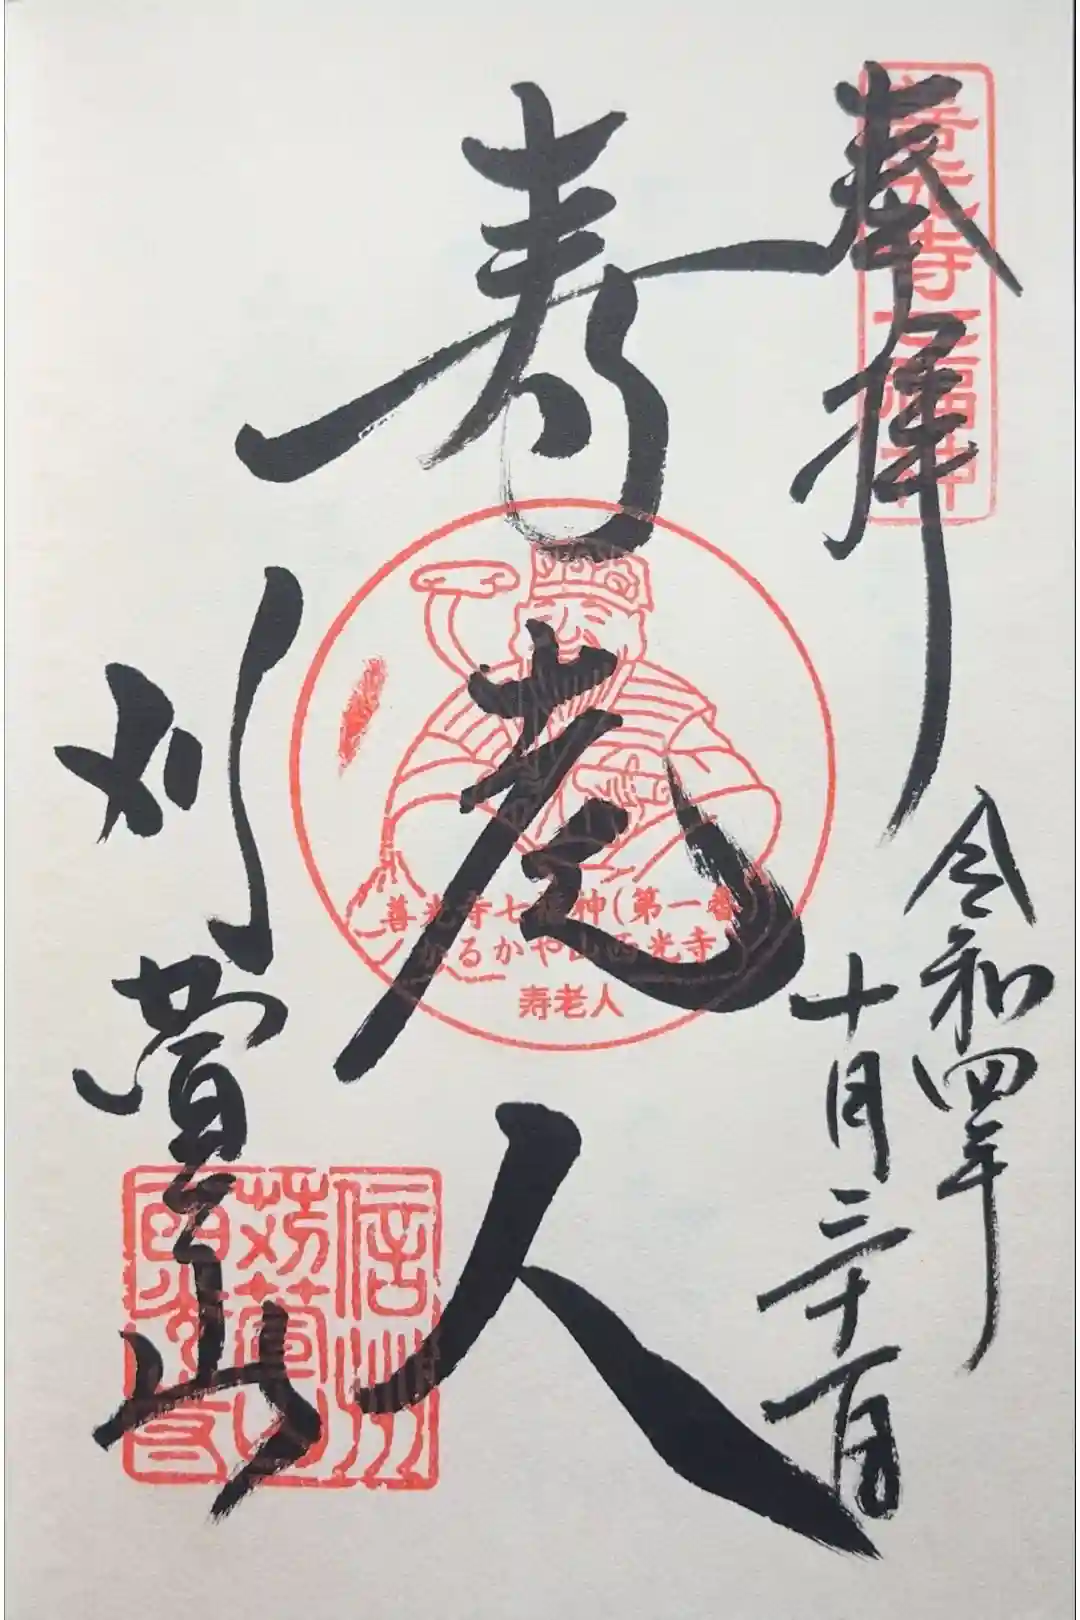 奉拝
善光寺七福神
令和四年
十月三十一日
寿老人
善光寺七福神(第一番)
かるかや山西光寺
寿老人
刈萱山
信州
苅萱山
西光寺